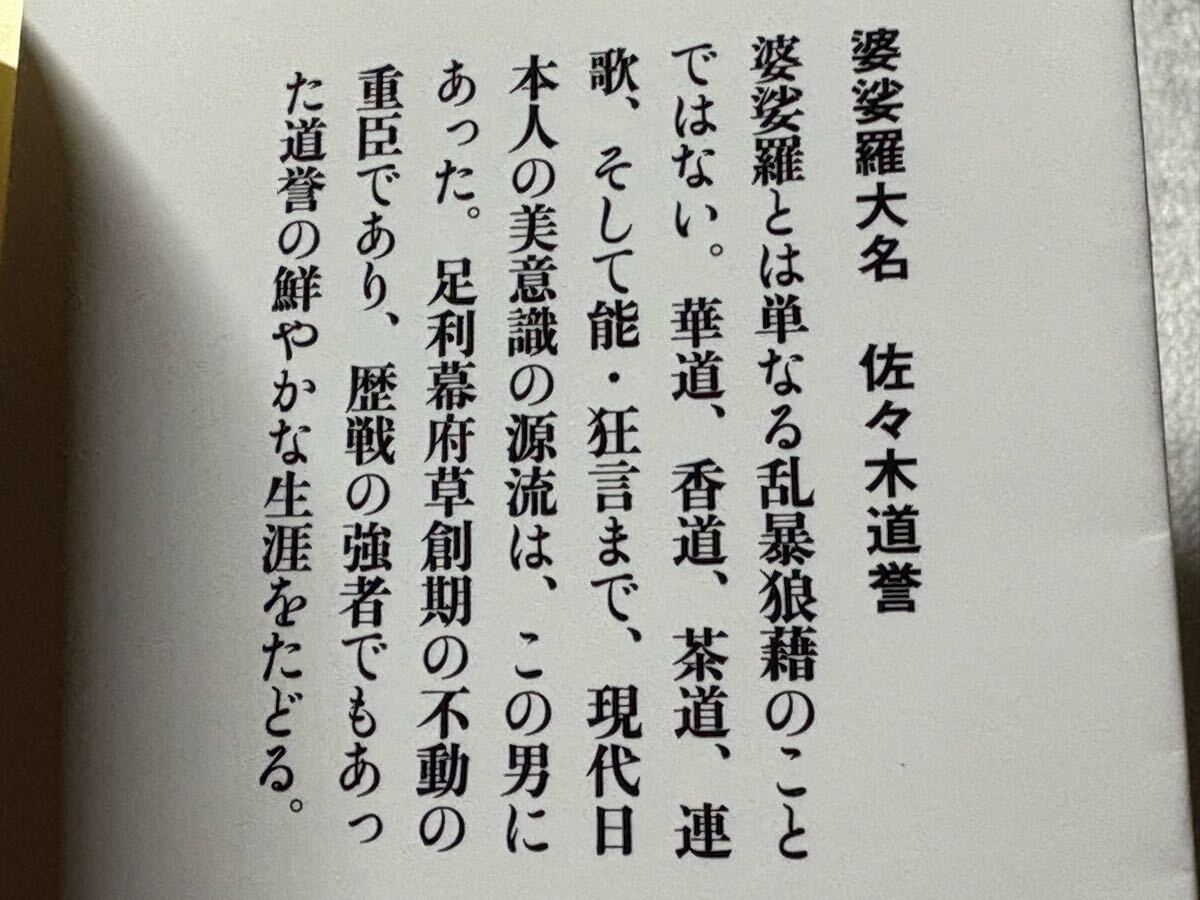 婆娑羅大名　佐々木道誉
婆娑羅とは単なる乱暴狼藉のこと
ではない。華道、香道、茶道、連
歌、そして能・狂言まで、現代日
本人の美意識の源流は、この男に
あった。足利幕府草創期の不動の
重臣であり、歴戦の強者でもあっ
た道誉の鮮やかな生涯をたどる。